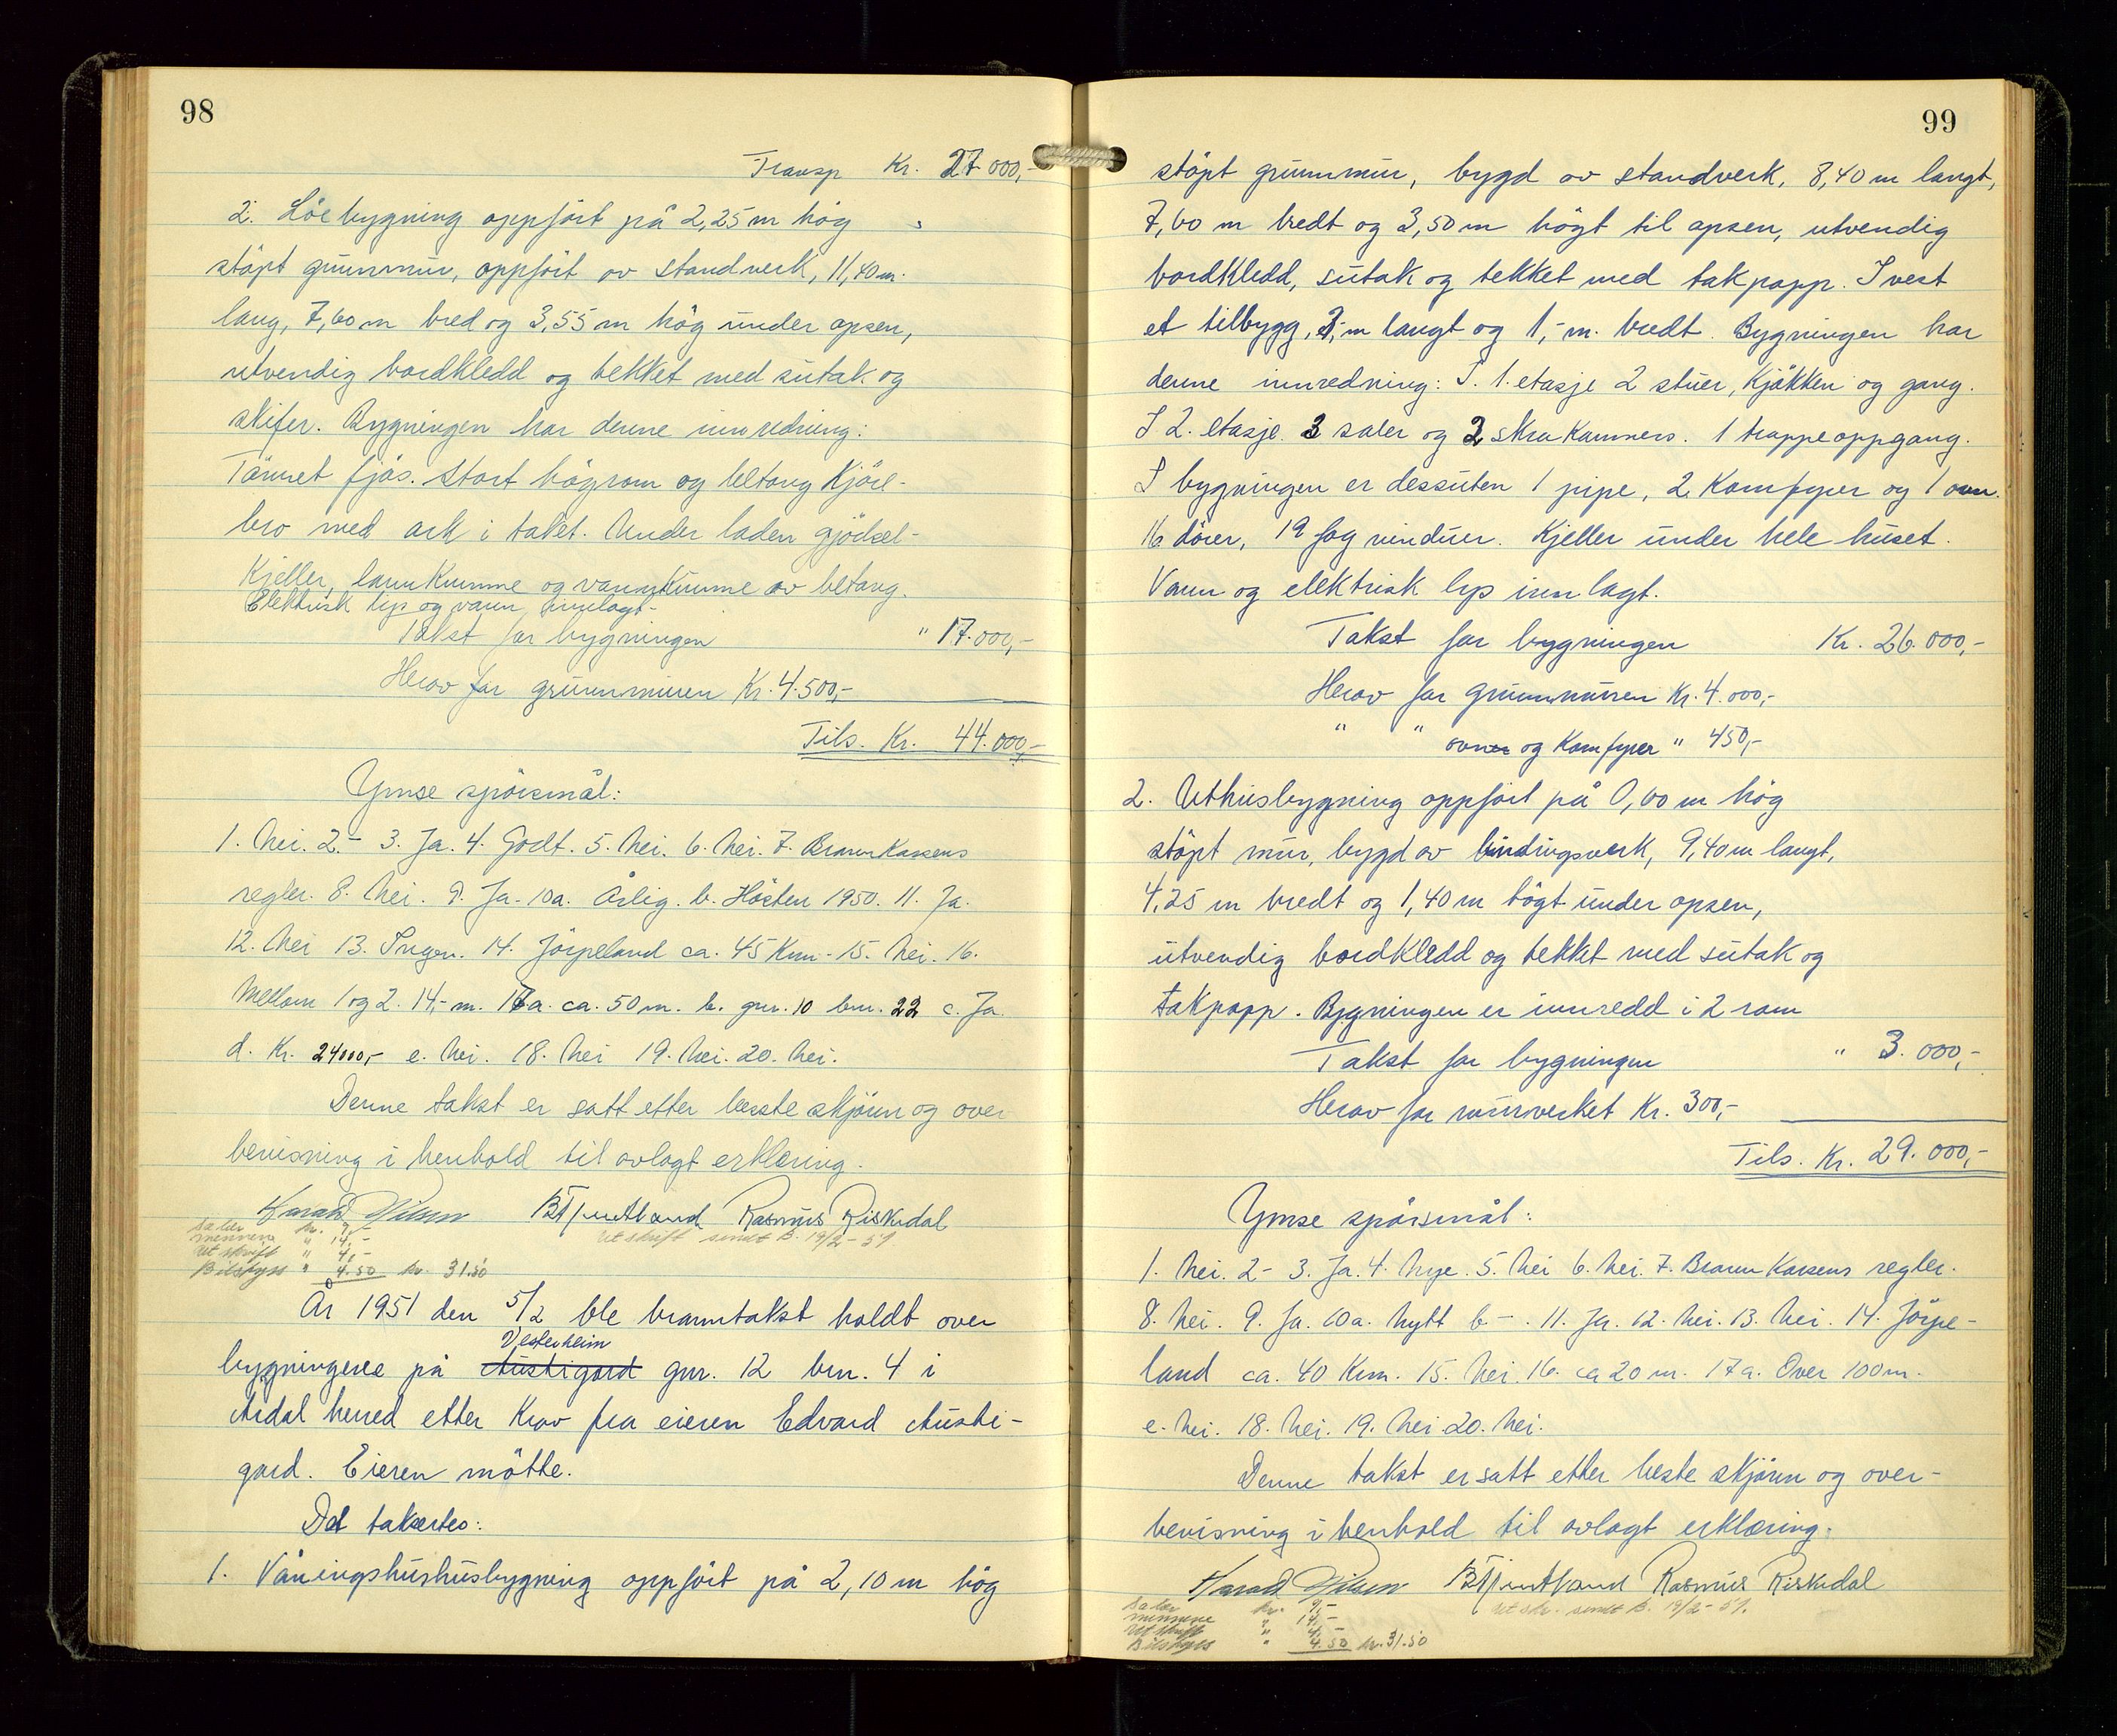 98
Transp Kr. 27.000,-
2. Löebygning oppfört på 2,25 m hög
stöpt grunnmur, oppfört av standverk, 11,40 m.
lang, 7,60 m bred og 3,55 m hög under opsen,
utvendig bordkledd og tekket med sutak og
skifer. Bygningen har denne innredning:
Tömret fjös. Stort högrom og betong kjöre-
bro med ark i taket. Under laden gjödsel-
Kjeller, lannkumme og vannkumme av betong.
Elektrisk lys og vann innlagt.
Takst for bygningen " 17.000,-
Herav for grunnmuren Kr. 4.500,-
Tils. Kr. 44.000,-
Ymse spörsmål:
1. Nei. 2.- 3. Ja. 4. Godt. 5. Nei. 6. Nei. 7. Brannkassens
regler. 8. Nei. 9. Ja. 10a. Årlig. b. Hösten 1950. 11. Ja.
12. Nei 13. Ingen. 14. Jörpeland ca. 45 Km. 15. Nei. 16.
Mellom 1 og 2. 14,- m. 17a. ca. 50 m. b. gnr. 10 bnr. 22 c. Ja.
d. Kr. 24000,- e. Nei. 18. Nei 19. Nei. 20. Nei.
Denne takst er satt etter beste skjönn og over
bevisning i henhold til avlagt erklæring.
Harald Nilsen B Tjentland Rasmus Riskedal
Salær kr. 9,-
mennene " 14,-
Utskrift " 4,-
Bilskyss " 4.50 kr. 31.50
Utskrift sendt B. 19/2-51
År 1951 den 5/2 ble branntakst holdt over
Vesterheim
bygningene på Austigard gnr. 12 bnr. 4 i
Årdal herred etter krav fra eieren Edvard Austi-
gard. Eieren mötte.
Det taksertes:
1. Våningshushusbygning oppfört på 2,10 m hög
99
stöpt grunnmur, bygd av standverk, 8,40 m langt,
7,60 m bredt og 3,50 m högt til opsen, utvendig
bordkledd, sutak og tekket med takpapp. I vest
et tilbygg, 3,- m langt og 1,- m. bredt. Bygningen har
denne innredning: I. 1. etasje 2 stuer, Kjökken og gang.
I 2. etasje 3 saler og 2 skrakammers. 1 trappeoppgang.
I bygningen er dessuten 1 pipe, 2 Komfyrer og 1 ovn.
16 dörer, 19 fag vinduer. Kjeller under hele huset.
Vann og elektrisk lys innlagt.
Takst for bygningen Kr. 26.000,-
Herav for grunnmuren Kr. 4.000,-
" " ovner og Komfyrer " 450,-
2. Uthusbygning oppfört på 0,60 m hög
stöpt mur, bygd av bindingsverk, 9,40 m langt,
4,25 m bredt og 1,40 m högt under opsen,
utvendig bordkledd og tekket med sutak og
takpapp. Bygningen er innredd i 2 rom
Takst for bygningen " 3.000,-
Herav for murverket Kr. 300,-
Tils. Kr. 29.000,-
Ymse spörsmål:
1. Nei. 2- 3. Ja. 4. Nye. 5. Nei 6. Nei. 7. Brann Kassens regler.
8. Nei. 9. Ja. 10a. Nytt b-. 11. Ja. 12. Nei. 13. Nei. 14. Jörpe-
land ca. 40 Km. 15. Nei. 16. ca 20 m. 17a. Over 100 m.
e. Nei. 18. Nei. 19. Nei. 20. Nei.
Denne takst er satt etter beste skjönn og over-
bevisning i henhold til avlagt erklæring.
Harald Nilsen B Tjentland Rasmus Riskedal
Salær kr. 9,-
mennene " 14,-
Utskrift " 4,-
Bilskyss " 4.50 kr. 31.50
Utskr. sendt B. 19/2-51.